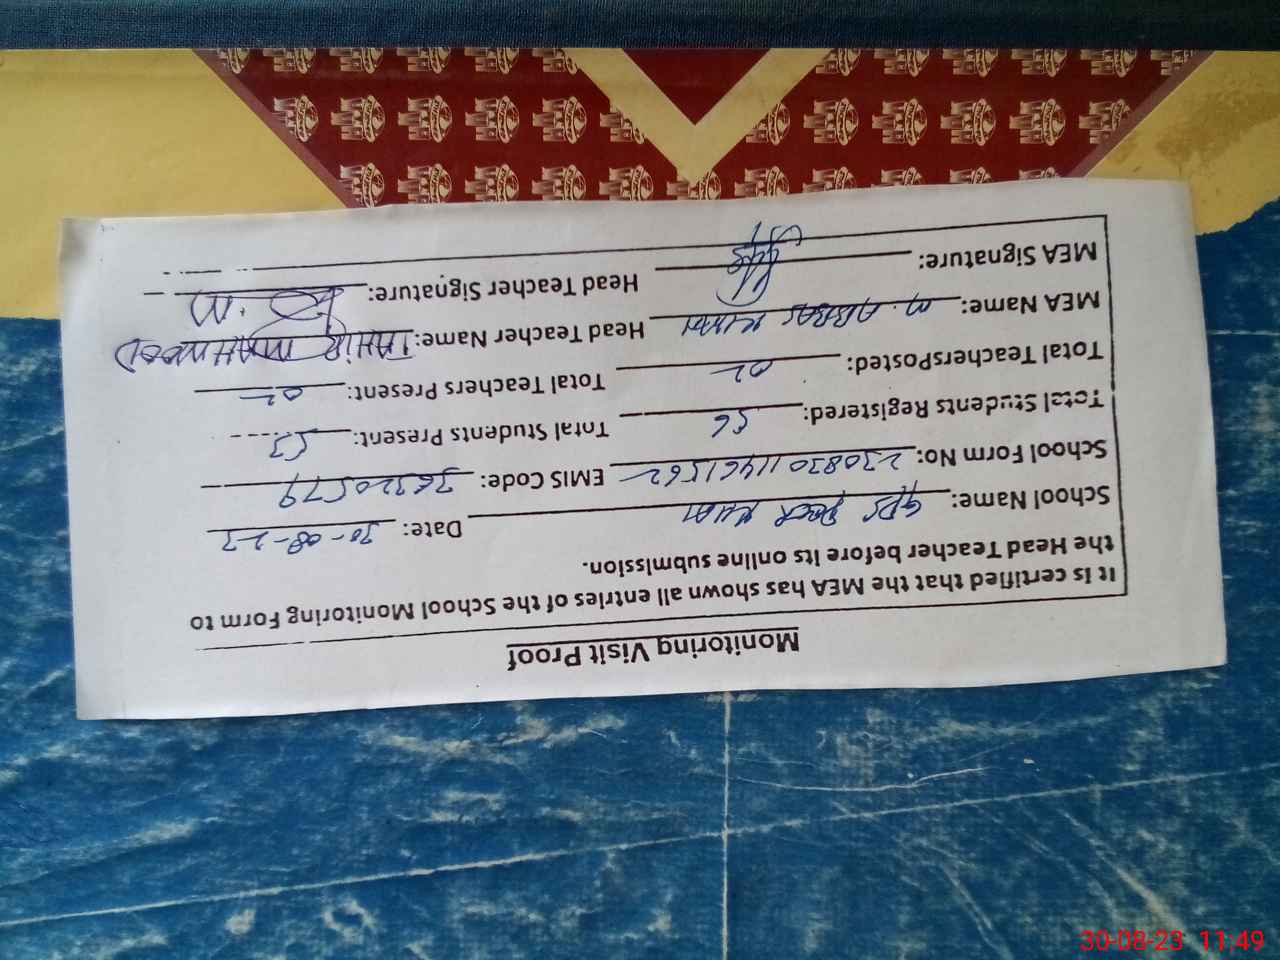 Monitoring Visit Proof
It is certified that the MEA has shown all entries of the School Monitoring Form to
the Head Teacher before its online submission.
School Name: GPS KHAN Date: 30-08-23
School Form No: 23083011461562 EMIS Code: 36320579
Total Students Registered: 56 Total Students Present: 53
Total TeachersPosted: 02 Total Teachers Present: 02
MEA Name: M. ABBAS KHAN Head Teacher Name: TAHIR MAHMOOD
MEA Signature: Head Teacher Signature:
30-08-23 11:49